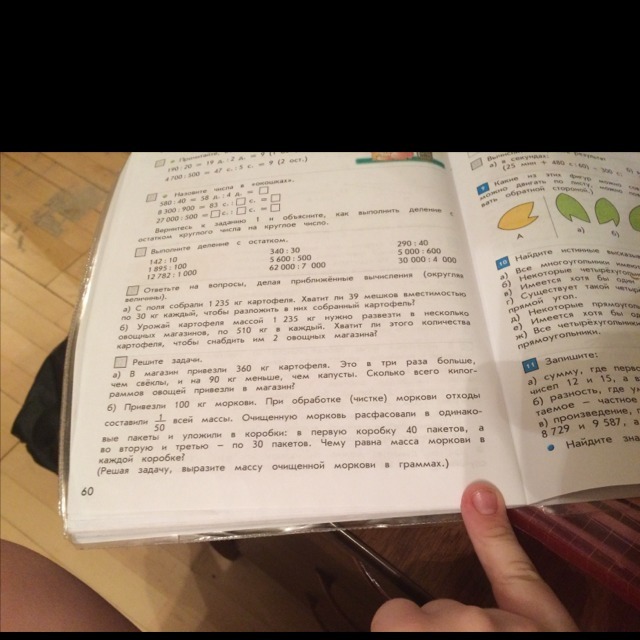 Прочитайте,
190 : 20 = 19 д. : 2 д. = 9 (1
4 700 : 500 = 47 с. : 5 с. = 9 (2 ост.)
Назовите числа в «окошках».
580 : 40 = 58 д. : 4 д. =
8 300 : 900 = 83 с. : с. =
27 000 : 500 = с. : с. =
Вернитесь к заданию 1 и объясните, как выполнить деление с
остатком круглого числа на круглое число.
Выполните деление с остатком.
142 : 10 340 : 30 290 : 40
1 895 : 100 5 600 : 500 5 000 : 600
12 782 : 1 000 62 000 : 7 000 30 000 : 4 000
Ответьте на вопросы, делая приближённые вычисления (округляя
величины).
а) С поля собрали 1 235 кг картофеля. Хватит ли 39 мешков вместимостью
по 30 кг каждый, чтобы разложить в них собранный картофель?
б) Урожай картофеля массой 1 235 кг нужно развезти в несколько
овощных магазинов, по 510 кг в каждый. Хватит ли этого количества
картофеля, чтобы снабдить им 2 овощных магазина?
Решите задачи.
а) В магазин привезли 360 кг картофеля. Это в три раза больше,
чем свёклы, и на 90 кг меньше, чем капусты. Сколько всего килог-
раммов овощей привезли в магазин?
б) Привезли 100 кг моркови. При обработке (чистке) моркови отходы
составили 1/50 всей массы. Очищенную морковь расфасовали в одинако-
вые пакеты и уложили в коробки: в первую коробку 40 пакетов, а
во вторую и третью – по 30 пакетов. Чему равна масса моркови в
каждой коробке?
(Решая задачу, выразите массу очищенной моркови в граммах.)
60
а) в секундах:
(25 мин + 480 с : 60)
9 Какие из этих фигур можно
можно двигать по листу,
вать обратной стороной
А а) б)
10 Найдите истинные
а) Все многоугольники
б) Некоторые
в) Имеется хотя бы один
г) Существует такой
прямой угол.
д) Некоторые
е) Имеется хотя бы
ж) Все четырёхугольники
прямоугольники.
11 Запишите:
а) сумму, где
чисел 12 и 15, а
б) разность, где
таемое – частное
в) произведение,
8 729 и 9 587, а
Найдите